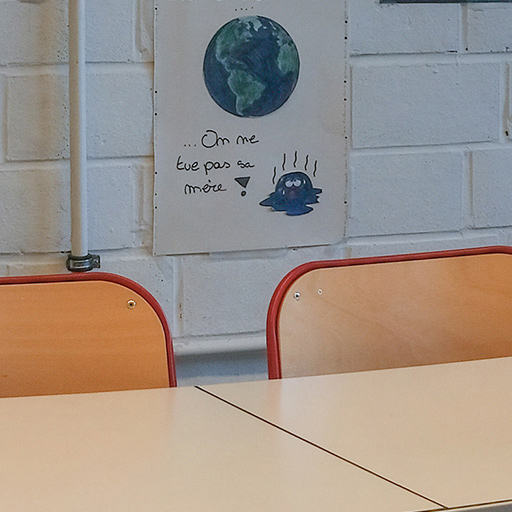 ... On ne
tue pas sa
mère !